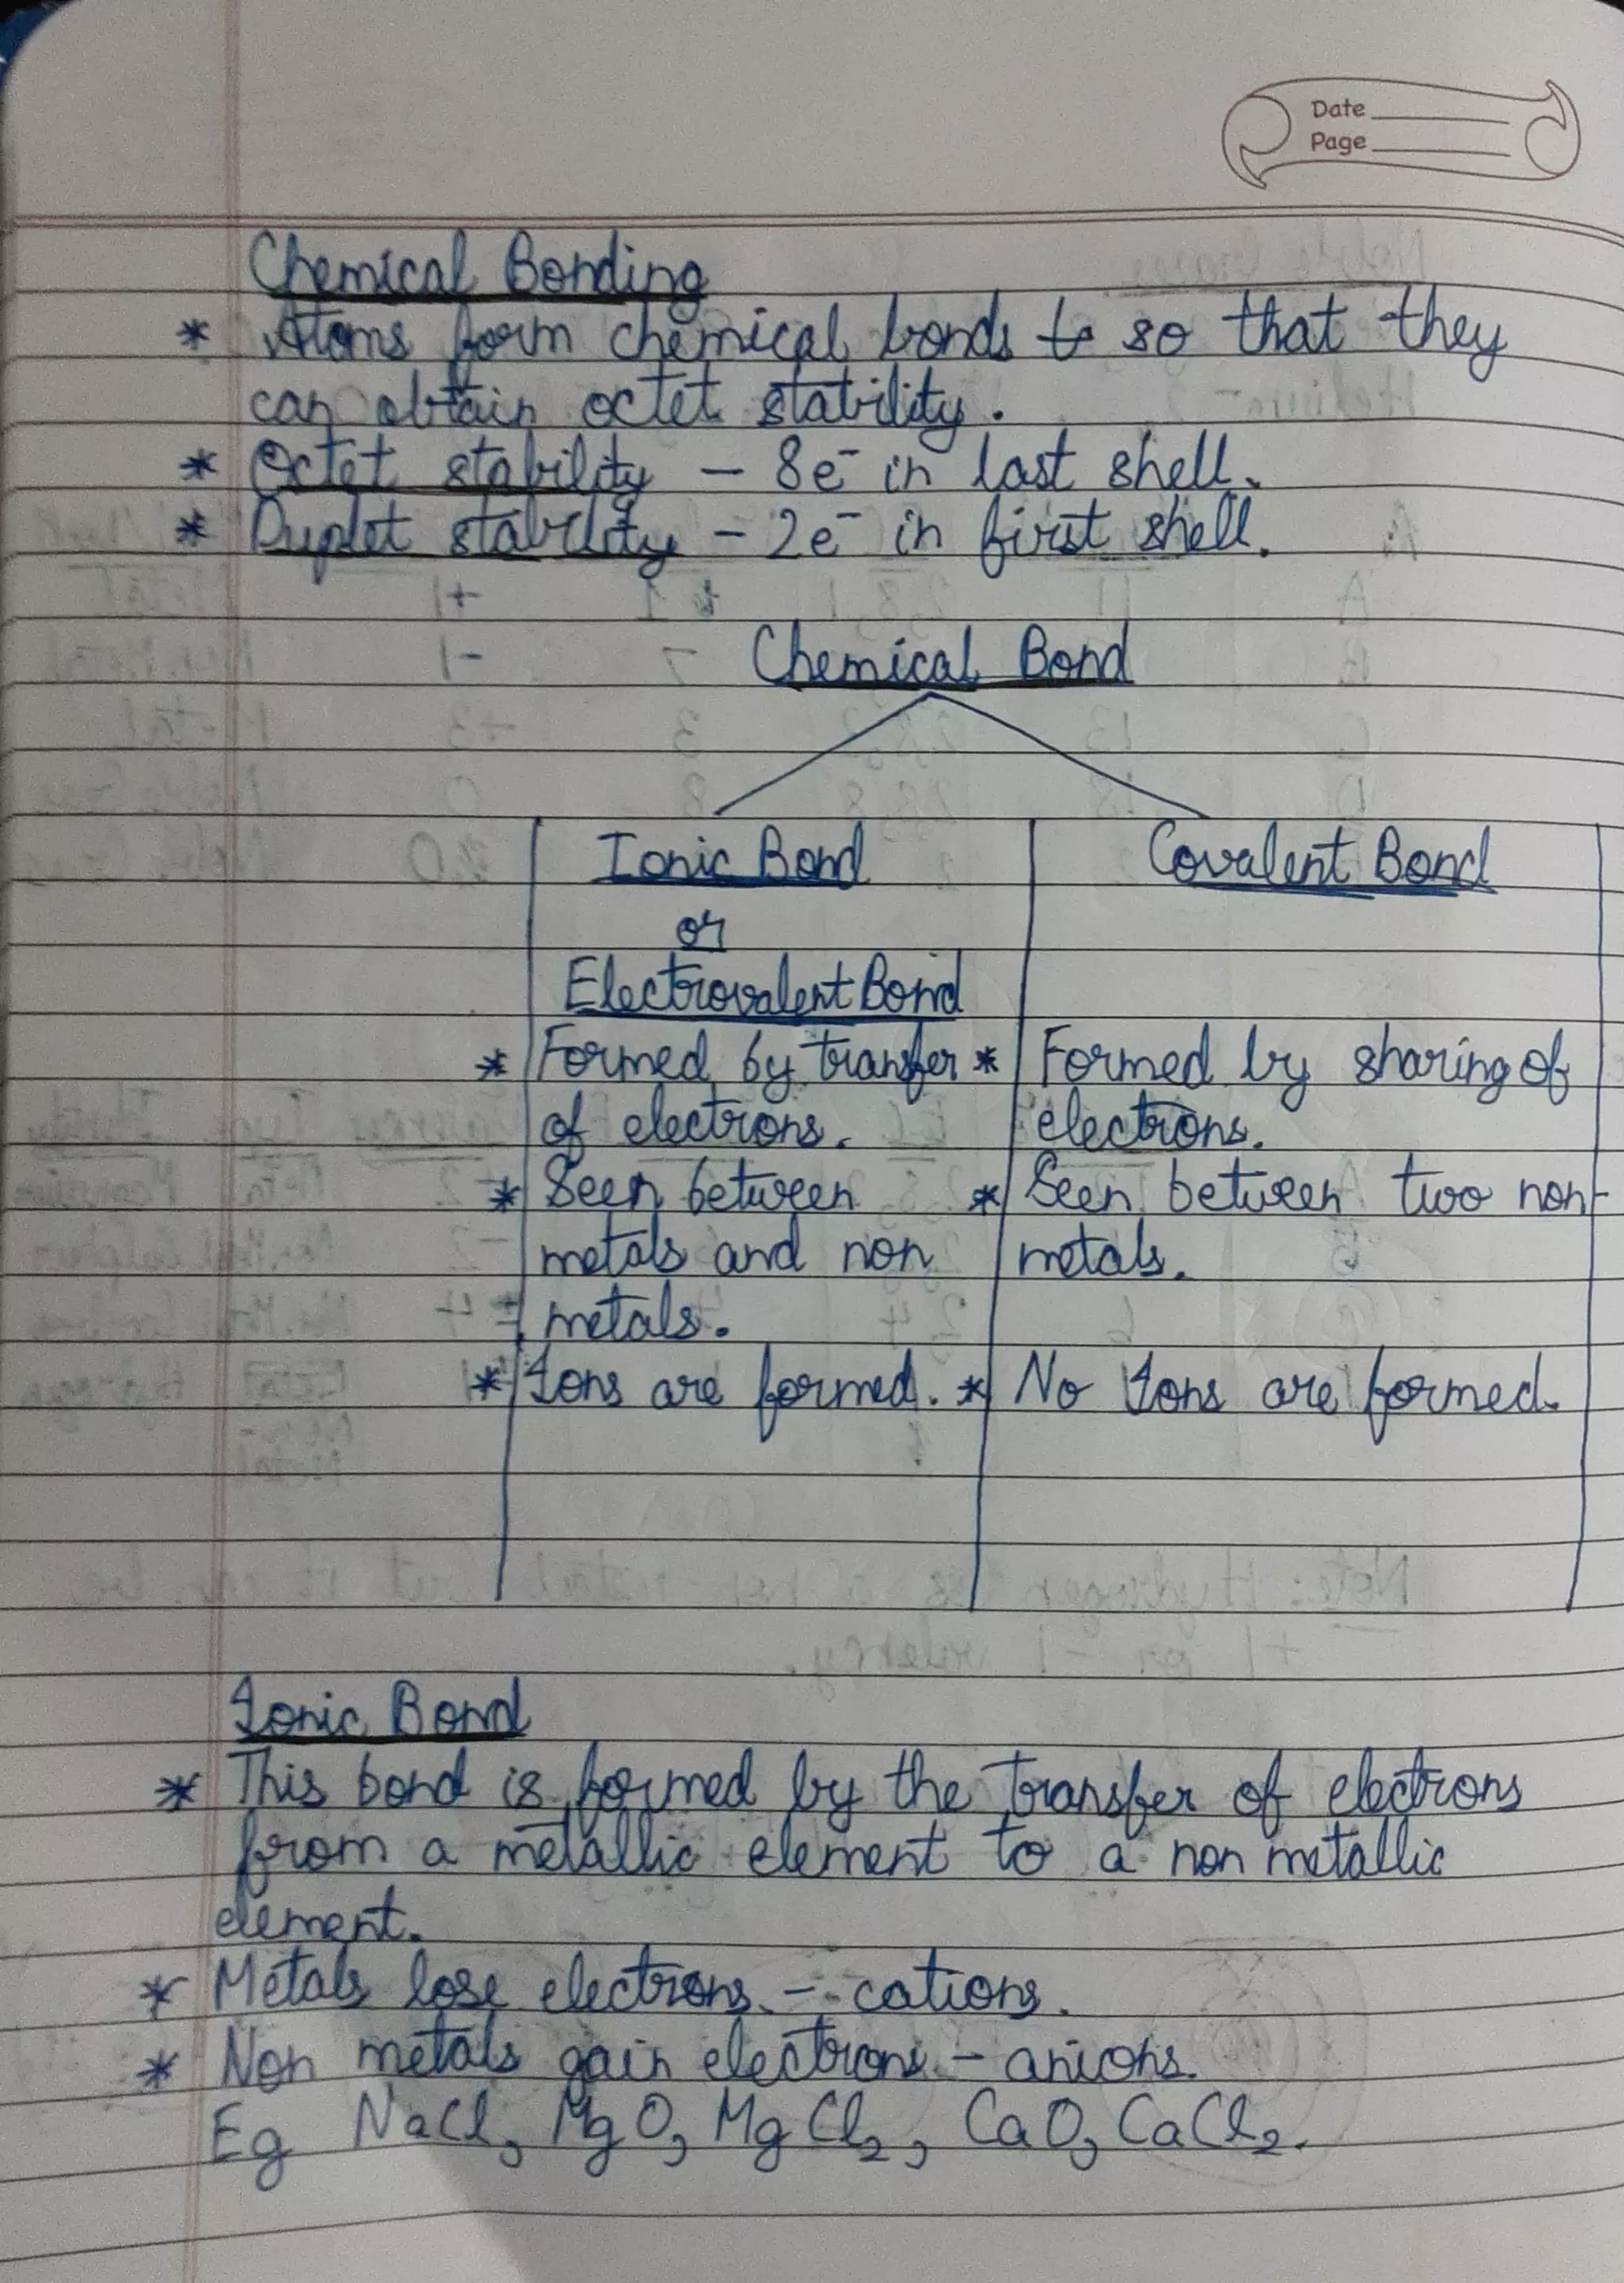 Date
Page
Chemical Bonding
* Atoms form chemical bonds so that they
can obtain octet stability.
* Octet stability - 8e⁻ in last shell.
* Duplet stability - 2e⁻ in first shell.
Chemical Bond
Ionic Bond
or
Electrovalent Bond
* Formed by transfer
of electrons.
* Seen between
metals and non
metals.
* Ions are formed.
Covalent Bond
* Formed by sharing of
electrons.
* Seen between two non-
metals.
* No Ions are formed.
Ionic Bond
* This bond is formed by the transfer of electrons
from a metallic element to a non metallic
element.
* Metals lose electrons - cations.
* Non metals gain electrons - anions.
Eg NaCl, MgO, MgCl₂, CaO, CaCl₂.